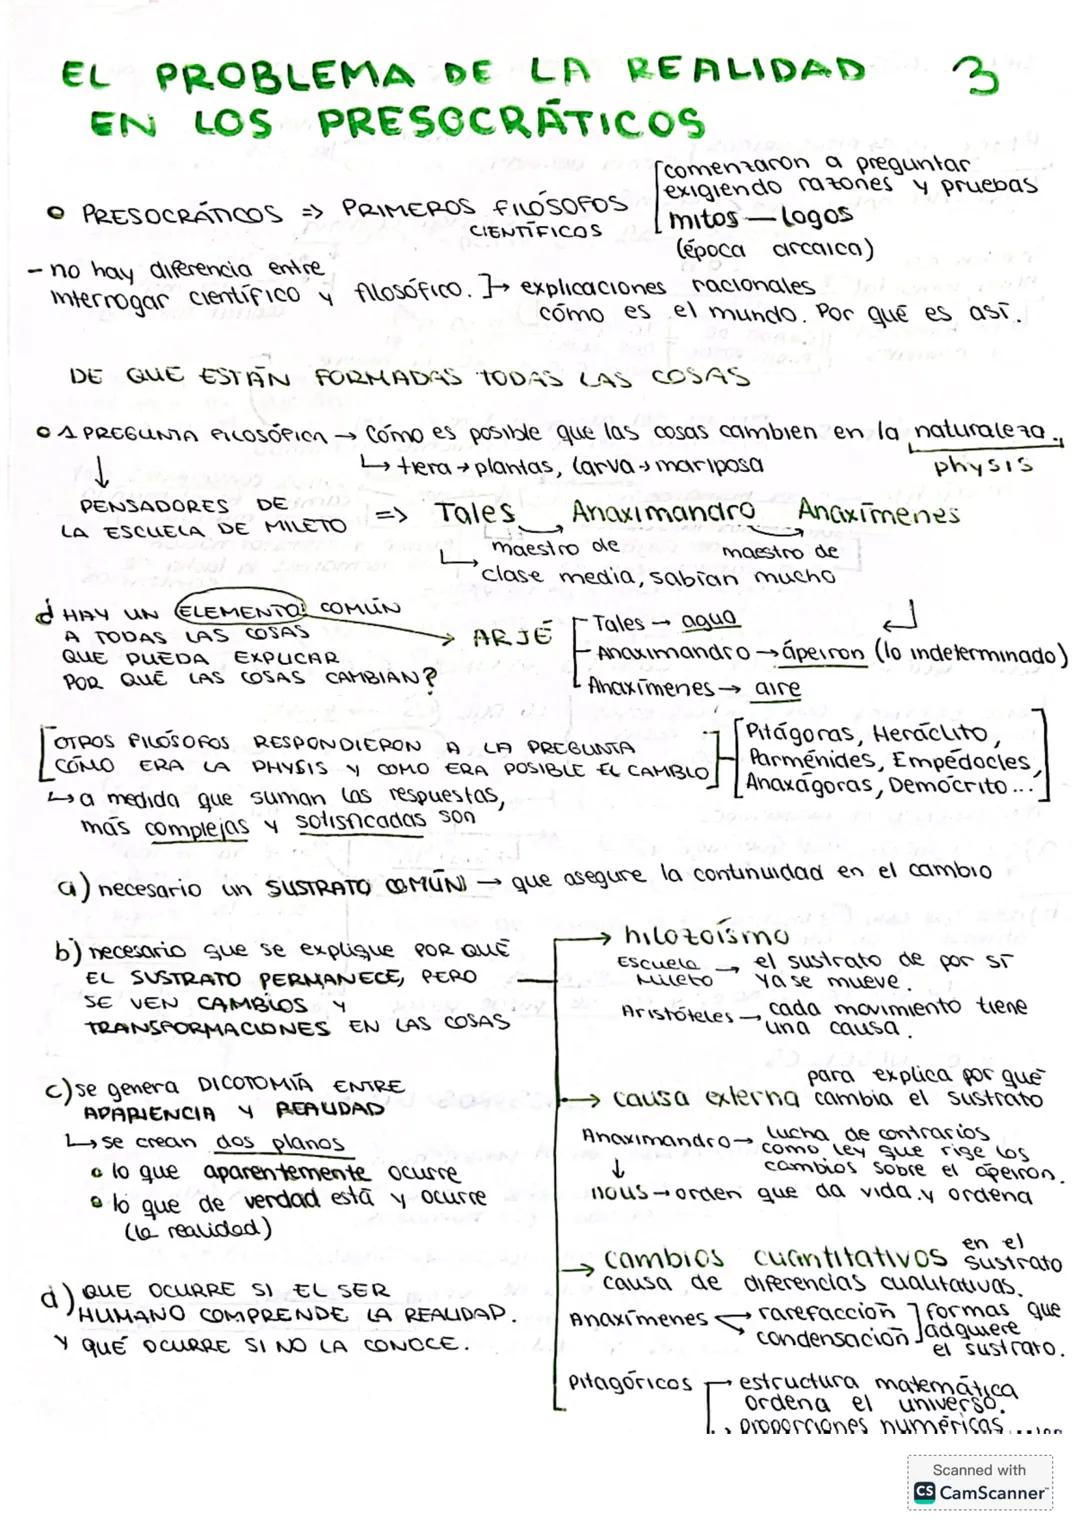 EL PROBLEMA DE LA REALIDAD 3
EN LOS PRESOCRÁTICOS
PRESOCRÁTICOS => PRIMEROS FILÓSOFOS
CIENTÍFICOS
comenzaron a preguntar
exigiendo razones y pruebas
mitos — logos
(época arcaica)
- no hay diferencia entre
interrogar científico y filosófico. ]→ explicaciones racionales
cómo es el mundo. Por qué es así.
DE QUE ESTÁN FORMADAS TODAS LAS COSAS
1 PREGUNTA FILOSÓFICA → Cómo es posible que las cosas cambien en la naturaleza.
↳ tiera → plantas, larva → mariposa
physis
↓
PENSADORES DE
LA ESCUELA DE MILETO => Tales Anaximandro Anaxímenes
maestro de maestro de
↳ clase media, sabían mucho
¿HAY UN ELEMENTO COMÚN
A TODAS LAS COSAS
QUE PUEDA EXPLICAR
POR QUÉ LAS COSAS CAMBIAN?
→ ARJÉ
Tales → agua
Anaximandro → ápeiron (lo indeterminado)
Anaxímenes → aire
OTROS FILÓSOFOS RESPONDIERON A LA PREGUNTA
CÓMO ERA LA PHYSIS Y COMO ERA POSIBLE EL CAMBIO
Pitágoras, Heráclito,
Parménides, Empédocles,
Anaxágoras, Demócrito...
↳ a medida que suman las respuestas,
más complejas y sofisticadas son
a) necesario un SUSTRATO COMÚN → que asegure la continuidad en el cambio
b) necesario que se explique POR QUÉ
EL SUSTRATO PERMANECE, PERO
SE VEN CAMBIOS Y
TRANSFORMACIONES EN LAS COSAS
→ hilozoísmo
Escuela Mileto → el sustrato de por sí
ya se mueve.
Aristóteles → cada movimiento tiene
una causa.
c) se genera DICOTOMÍA ENTRE
APARIENCIA Y REALIDAD
↳ se crean dos planos
lo que aparentemente ocurre
lo que de verdad está y ocurre
(la realidad)
→ causa externa para explica por qué
cambia el sustrato
Anaximandro → lucha de contrarios
como ley que rige los
cambios sobre el ápeiron.
↓
nous → orden que da vida y ordena
d) QUE OCURRE SI EL SER
HUMANO COMPRENDE LA REALIDAD.
Y QUÉ OCURRE SI NO LA CONOCE.
→ cambios cuantitativos en el
sustrato
causa de diferencias cualitativas.
Anaxímenes → rarefacción
condensación
formas que
adquiere
el sustrato.
Pitagóricos → estructura matemática
ordena el universo.
→ proporciones numéricas
Scanned with
CS CamScanner